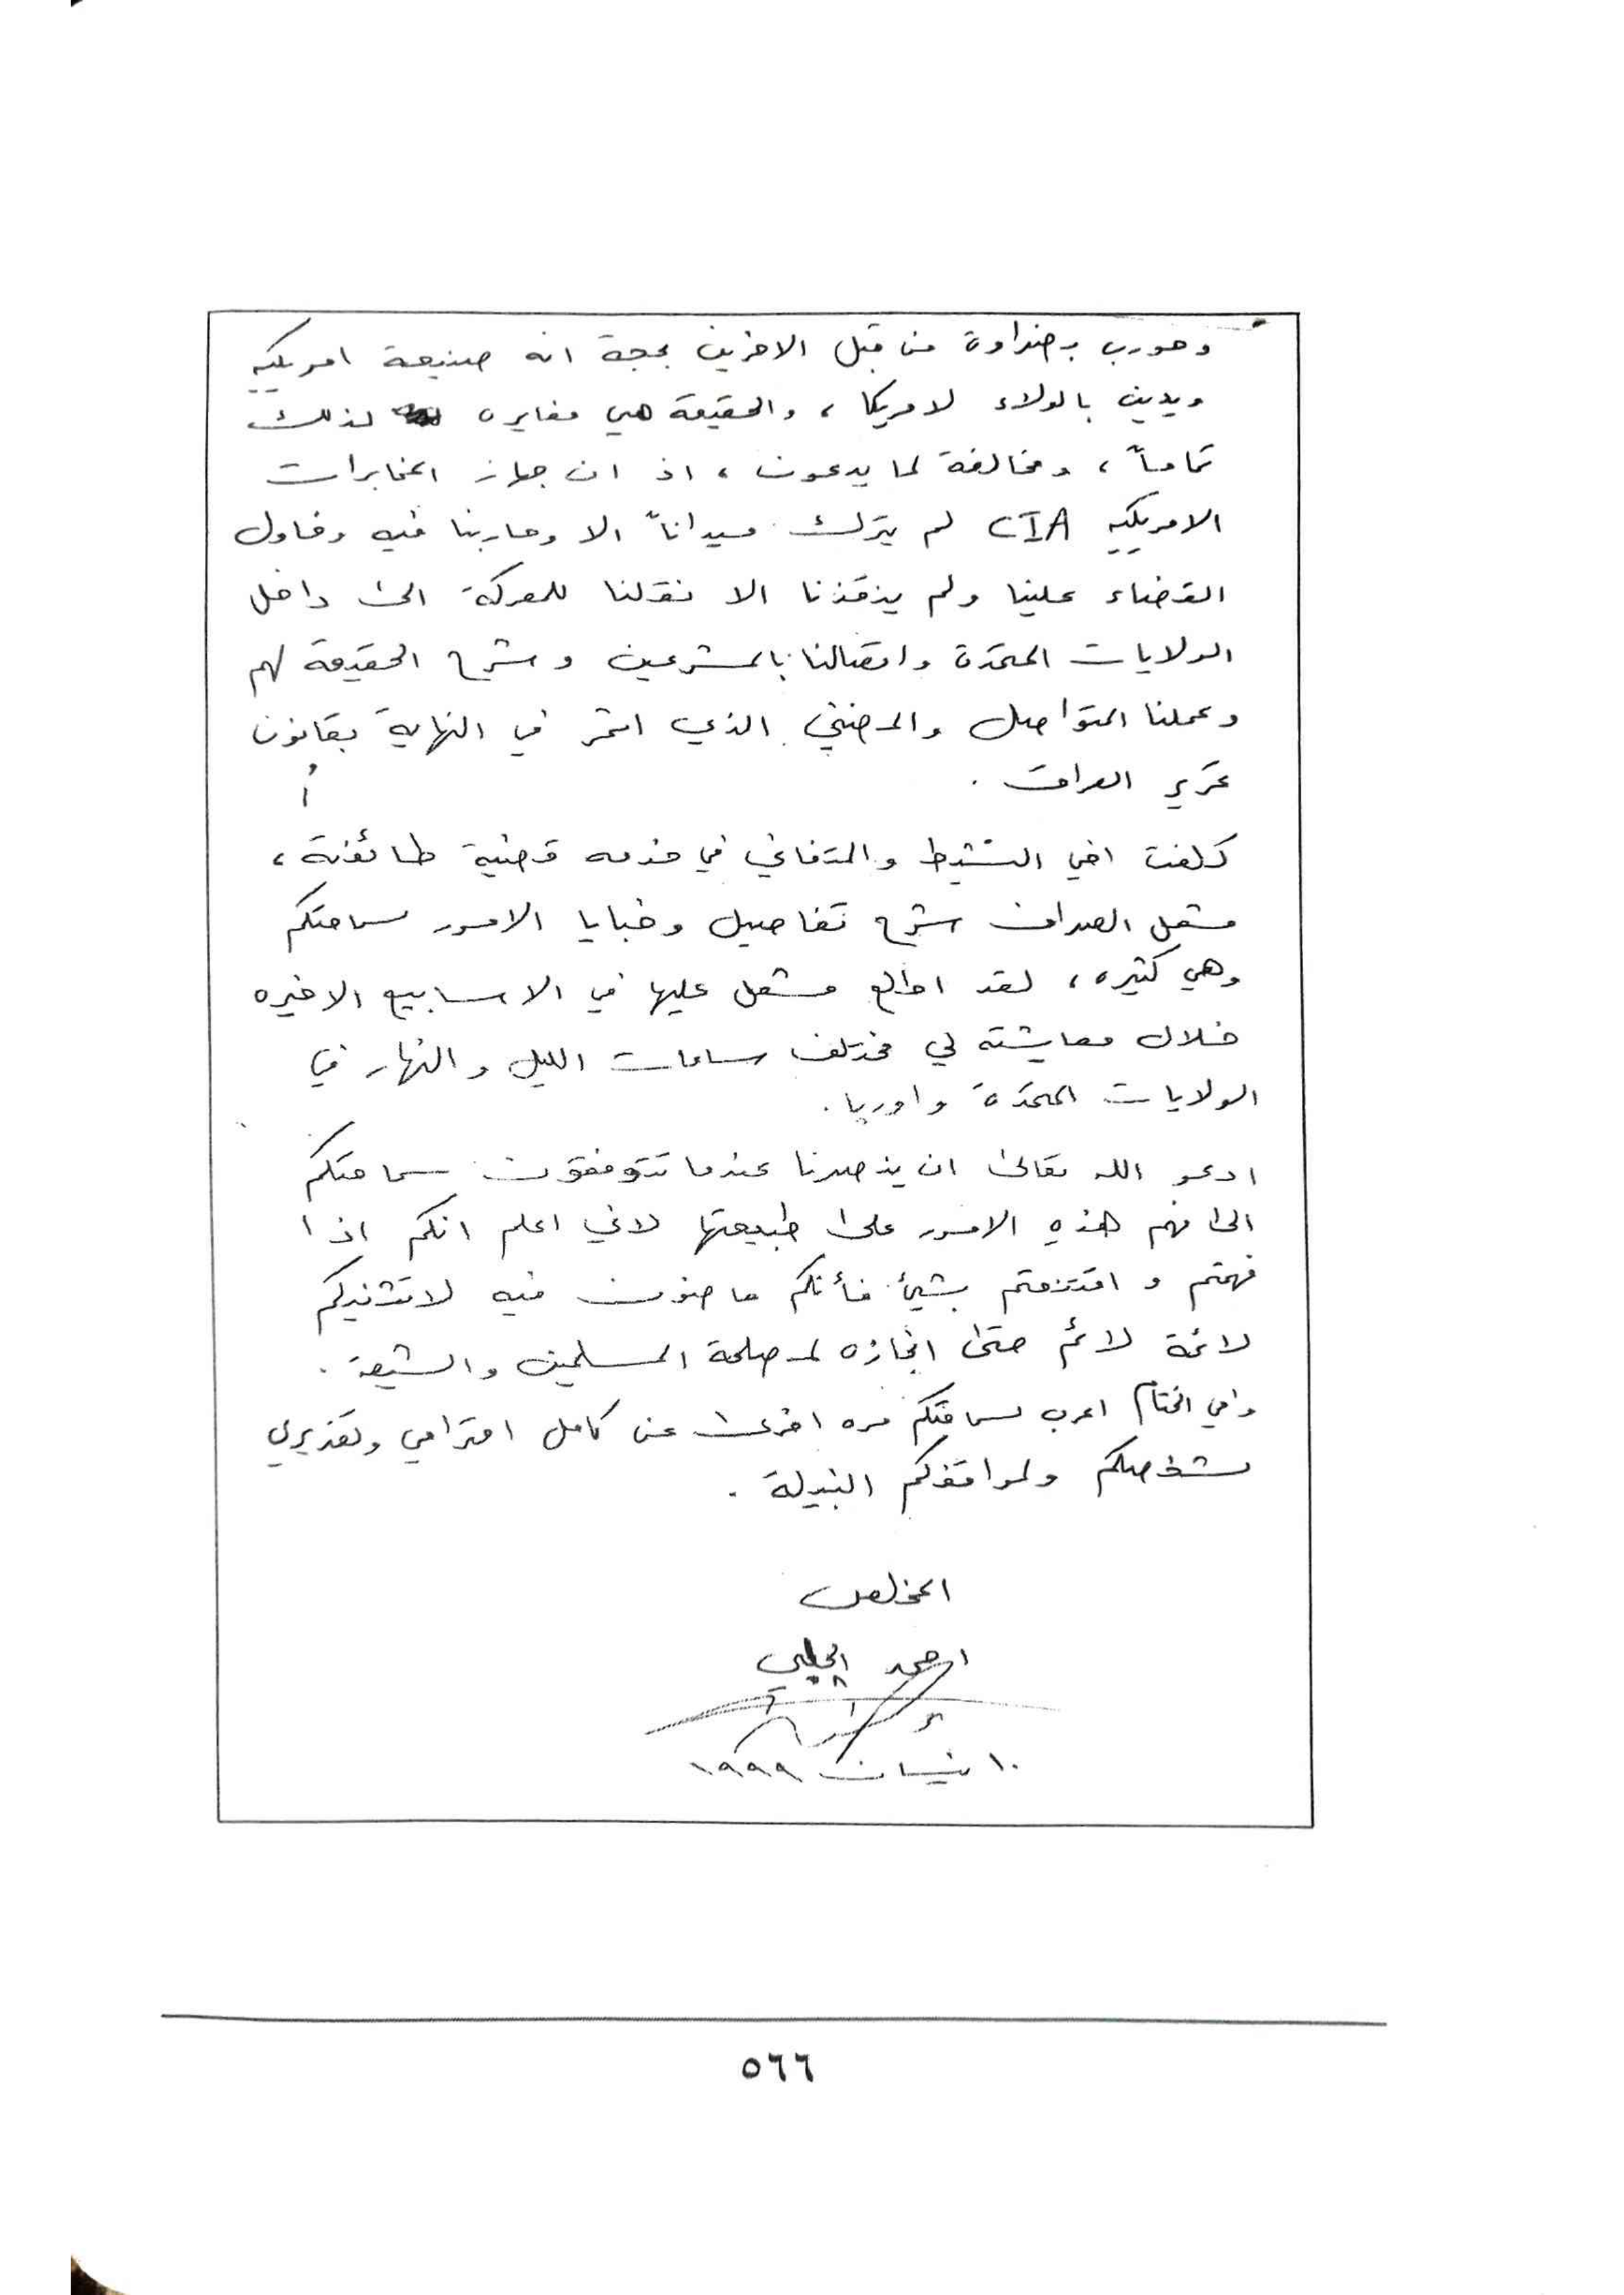 وحورب بضراوة من قبل الاخرين بحجة انه صنيعة امريكيه
ويدين بالولاء لامريكا ، والحقيقة هي مغايره لذلك
تماماً ، ومخالفة لما يدعون ، اذ ان جهاز المخابرات
الامريكيه CIA لم يترك ميداناً الا وحاربنا فيه وحاول
القضاء علينا ولم ينقذنا الا نقلنا للمعركة الى داخل
الولايات المتحدة واتصالنا بالمشرعين وشرح الحقيقة لهم
وعملنا المتواصل والمضني الذي اثمر في النهاية بقانون
تحرير العراق .
كلفت اخي النشيط والمتفاني في خدمه قضية طائفته ،
مشعل شرح تفاصيل وخبايا الامور لسماحتكم
وهي كثيره ، لقد اطلع مشعل عليها في الاسابيع الاخيره
خلال معايشته لي مختلف ساعات الليل والنهار في
الولايات المتحدة واوربا .
ادعو الله تعالى ان ينصرنا عندما تتوفقون سماحتكم
الى فهم هذه الامور على طبيعتها لاني اعلم انكم اذا
فهمتم و اقتنعتم بشيئ فأنكم ماضون فيه لاتثنيكم
لائمة لائم حتى انجازه لمصلحة المسلمين والشيعة .
وفي الختام اعرب لسماحتكم مره اخرى عن كامل احترامي وتقديري
لشخصكم ولمواقفكم النبيلة .
المخلص
احمد الجلبي
١٠ نيسان ١٩٩٩
٥٦٦